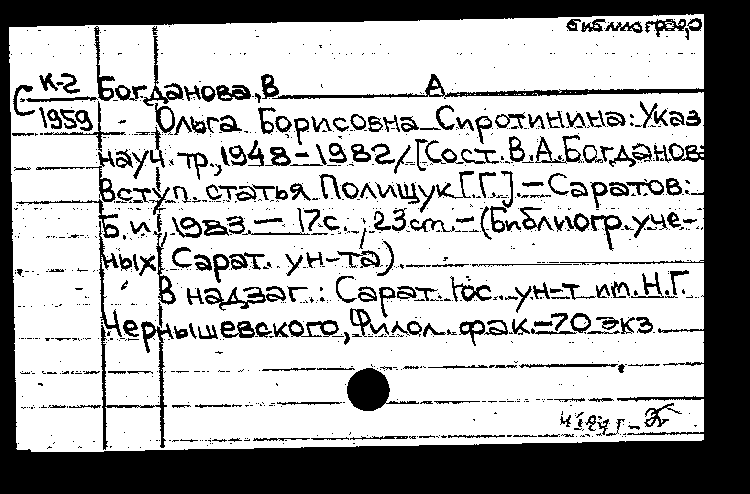 библиограф
К-2 Богданова, В А
С 1959 Ольга Борисовна Сиротинина: Указ
науч. тр., 1948-1982/[Сост. В.А.Богданова
Вступ. статья Полищук Г.Г.].—Саратов:
Б.и., 1983.— 17с.; 23см.—(Библиогр.уче-
ных Сарат. ун-та).
В надзаг.: Сарат. гос. ун-т им.Н.Г.
Чернышевского, Филол. фак.—70 экз.